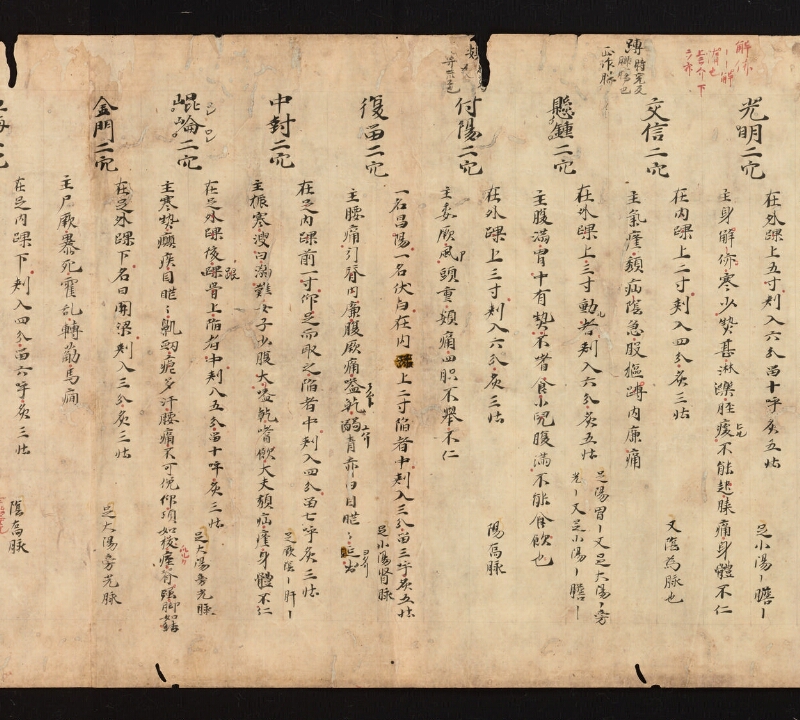 光明二穴
在外踝上五寸刾入六分留十呼灸五壮
足小陽ー膽ー
主身解㑊寒少熱甚淋濼胫痠不能起膝痛身體不仁
交信二穴
在内踝上二寸刾入四分灸三壮
又陰為脉也
主氣癃㿗病陰急股樞蹲内廉痛
懸鍾二穴
在外踝上三寸動者刾入六分灸五壮
足陽胃ー又足大陽ー旁
光ー又足小陽ー膽ー
主腹滿胃中有熱不嗜食小兒腹滿不能食飲也
付陽二穴
在外踝上三寸刾入六分灸三壮
陽為脉
主委厥風頭重頞痛四㭰不舉不仁
復留二穴
一名昌陽一名伏白在内踝上二寸陥者中刾入三分留三呼灸五壮
足小陽腎脉
主腰痛引脊内廉腹厥痛嗌乾
中封二穴
在足内踝前一寸仰足而取之陥者中刾入四分留七呼灸三壮
足厥陰ー肝ー
主振寒溲白溺難女子少腹大嗌乾嗜飲大夫㿗病癃身體不仁
崐崘二穴
在足外踝後踝骨上陥者中刾入五分留十呼灸三壮
跟
足大陽旁光脉
主寒熱癲疾目䀮ミ鼽衂瘧多汗腰痛不可俛仰項如拔
金門二穴
在足外踝下名曰開梁刾入三分灸三壮
足大陽旁光脉
主尸厥暴死霍乱轉筋馬癎
在足内踝下刾入四分留六呼灸三壮
陰為脉